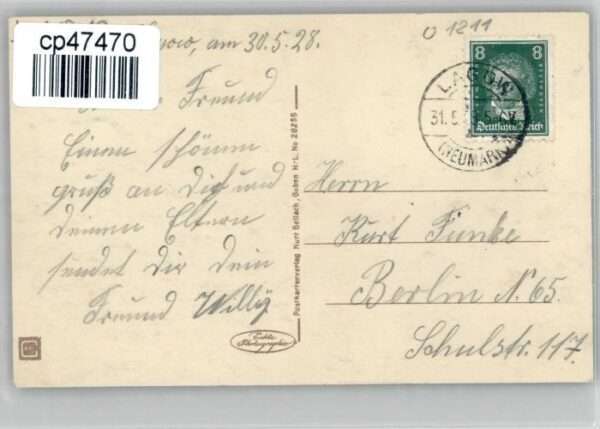 cp47470
am 30.5.28.
Freund
Einen schönen
gruß an Dich und
deinen Eltern
sendet Dir Dein
Freund Willÿ
Postkartenverlag Kurt Bellach, Guben N-L. No 28255
Echte
Photographie
0 1211
8 8
Deutsches Reich
LAGOW
31.5.
(NEUMARK)
Herrn
Kurt Funke
Berlin N. 65.
Schulstr. 117.